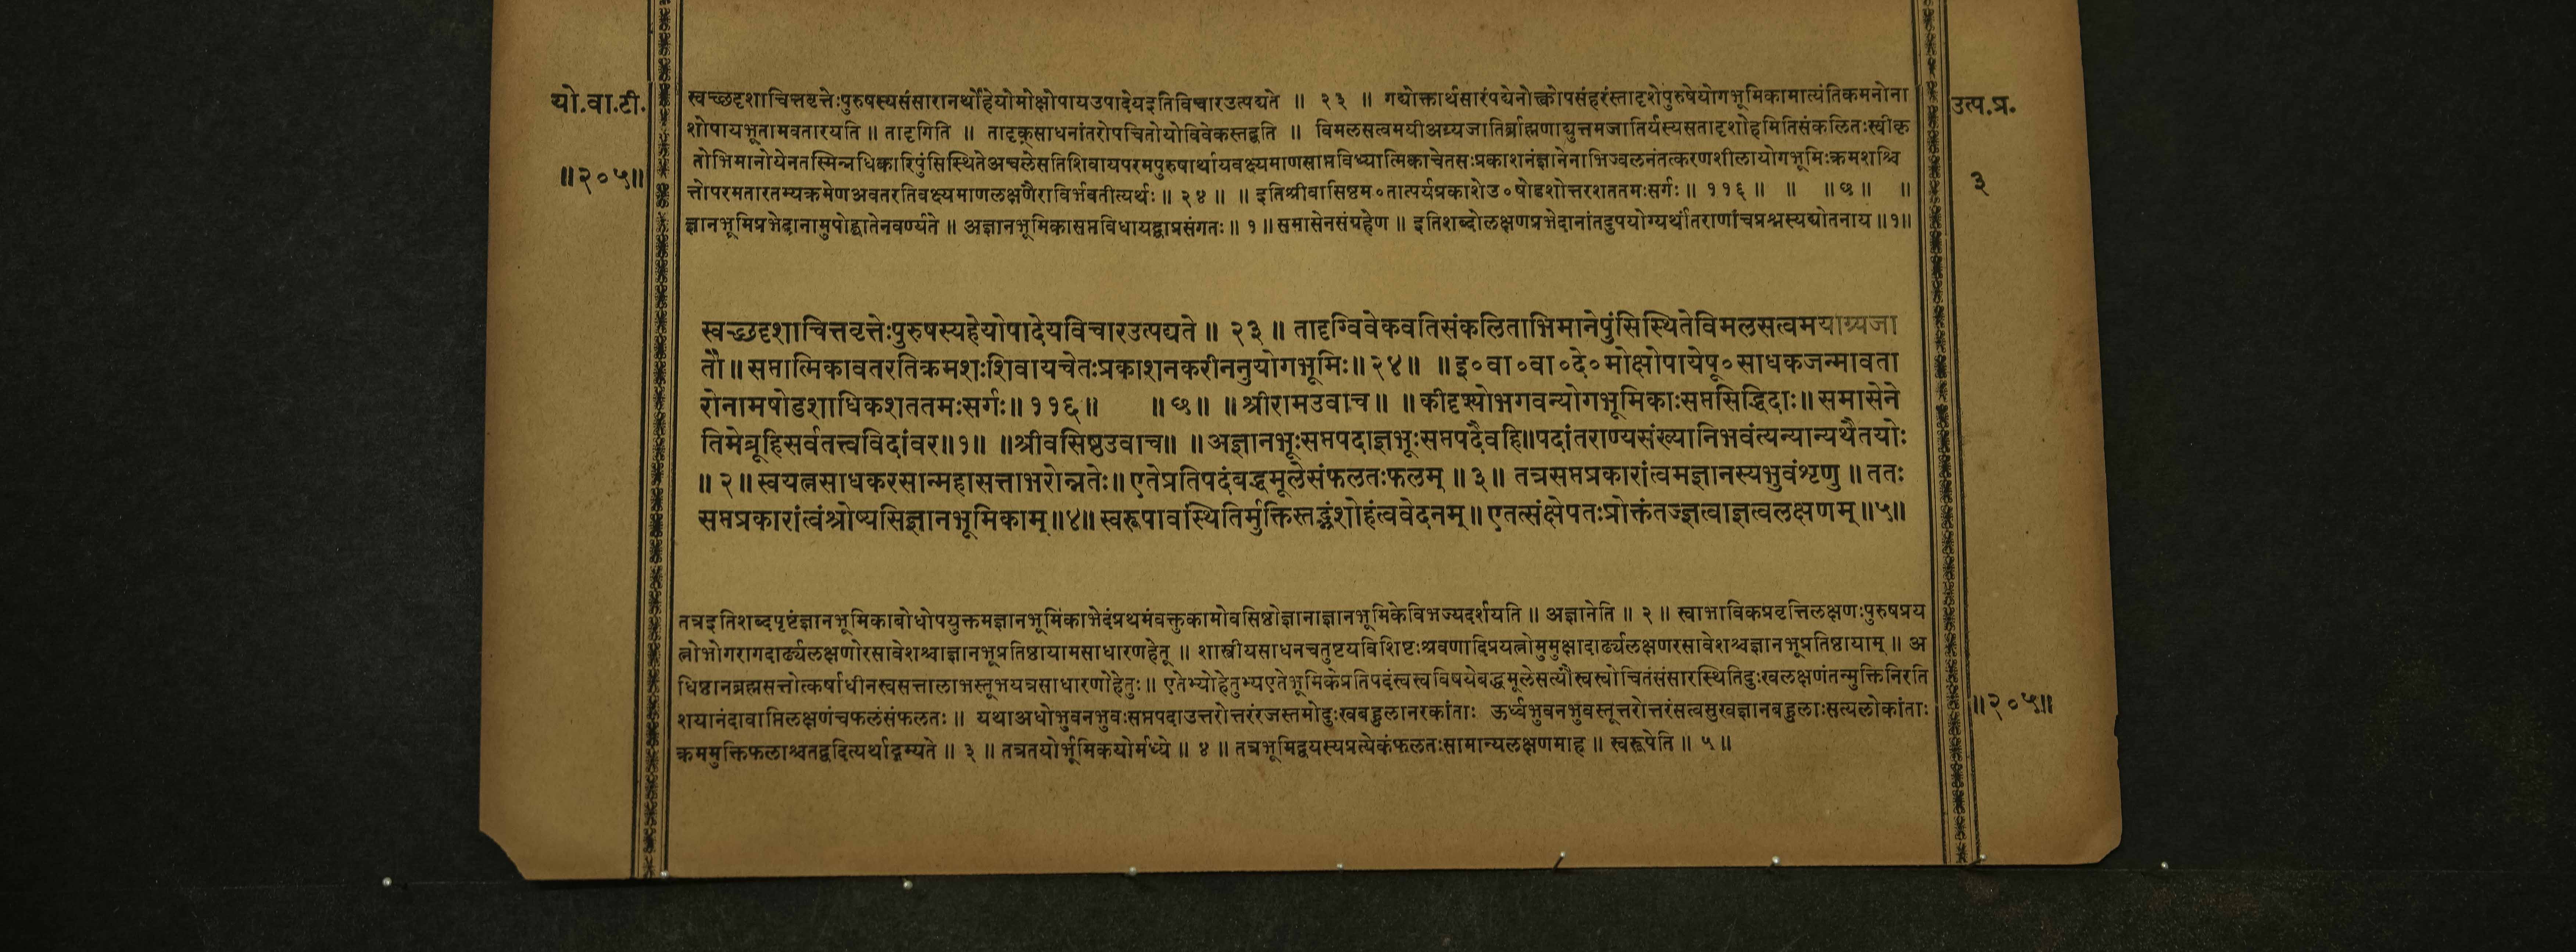 यो.वा.टी.
॥२०५॥
उत्प.प्र.
३
स्वच्छदृशाचित्तवृत्तेःपुरुषस्यसंसारानर्थोहेयोमोक्षोपायउपादेयइतिविचारउत्पद्यते ॥ २३ ॥ गद्योक्तार्थसारंपद्येनोत्क्वोपसंहरंस्तादृशेपुरुषेयोगभूमिकामात्यंतिकमनोना
शोपायभूतामवतारयति ॥ तादृगिति ॥ तादृक्साधनांतरोपचितोयोविवेकस्तद्वति ॥ विमलसत्वमयीअग्र्यजातिर्ब्राह्मणाद्युत्तमजातिर्यस्यसतादृशोहमितिसंकलितःस्वीकृ
तोभिमानोयेनतस्मिन्नधिकारिपुंसिस्थितेअचलेसतिशिवायपरमपुरुषार्थायवक्ष्यमाणसाप्तविध्यात्मिकाचेतसःप्रकाशनंज्ञानेनाभिज्वलनंतत्करणशीलायोगभूमिःक्रमशश्चि
त्तोपरमतारतम्यक्रमेणअवतरतिवक्ष्यमाणलक्षणैराविर्भवतीत्यर्थः ॥ २४ ॥ ॥ इतिश्रीवासिष्ठम०तात्पर्यप्रकाशेउ०षोडशोत्तरशततमःसर्गः ॥ ११६ ॥ ॥ ॥ ७ ॥ ॥
ज्ञानभूमिप्रभेदानामुपोद्घातेनवर्ण्यते ॥ अज्ञानभूमिकासप्तविधायद्वाप्रसंगतः ॥ १ ॥ समासेनसंग्रहेण ॥ इतिशब्दोलक्षणप्रभेदानांतदुपयोग्यर्थांतराणांचप्रश्नस्यद्योतनाय ॥१॥
स्वच्छदृशाचित्तवृत्तेःपुरुषस्यहेयोपादेयविचारउत्पद्यते ॥ २३ ॥ तादृग्विवेकवतिसंकलिताभिमानेपुंसिस्थितेविमलसत्वमयाग्र्यजा
तौ ॥ सप्तात्मिकावतरतिक्रमशःशिवायचेतःप्रकाशनकरीननुयोगभूमिः ॥ २४ ॥ ॥ इ०वा०वा०दे०मोक्षोपायेषू०साधकजन्मावता
रोनामषोडशाधिकशततमःसर्गः ॥ ११६ ॥ ॥ ७ ॥ ॥ श्रीरामउवाच ॥ ॥ कीदृश्योभगवन्योगभूमिकाःसप्तसिद्धिदाः ॥ समासेने
तिमेब्रूहिसर्वतत्त्वविदांवर ॥१॥ ॥श्रीवसिष्ठउवाच॥ ॥ अज्ञानभूःसप्तपदाज्ञभूःसप्तपदैवहि॥पदांतराण्यसंख्यानिभवंत्यन्यान्यथैतयोः
॥ २ ॥ स्वयत्नसाधकरसान्महासत्ताभरोन्नतेः ॥ एतेप्रतिपदंबद्धमूलेसंफलतःफलम् ॥ ३ ॥ तत्रसप्तप्रकारांत्वमज्ञानस्यभुवंशृणु ॥ ततः
सप्तप्रकारांत्वंश्रोष्यसिज्ञानभूमिकाम् ॥४॥ स्वरूपावस्थितिर्मुक्तिस्तद्भ्रंशोहंत्ववेदनम् ॥ एतत्संक्षेपतःप्रोक्तंतज्ज्ञत्वाज्ञत्वलक्षणम् ॥५॥
तत्रइतिशब्दपृष्टंज्ञानभूमिकाबोधोपयुक्तमज्ञानभूमिकाभेदंप्रथमंवक्तुकामोवसिष्ठोज्ञानाज्ञानभूमिकेविभज्यदर्शयति ॥ अज्ञानेति ॥ २ ॥ स्वाभाविकप्रवृत्तिलक्षणःपुरुषप्रय
त्नोभोगरागदार्ढ्यलक्षणोरसावेशश्चाज्ञानभूप्रतिष्ठायामसाधारणहेतू ॥ शास्त्रीयसाधनचतुष्टयविशिष्टःश्रवणादिप्रयत्नोमुमुक्षादार्ढ्यलक्षणरसावेशश्चज्ञानभूप्रतिष्ठायाम् ॥ अ
धिष्ठानब्रह्मसत्तोत्कर्षाधीनस्वसत्तालाभस्तूभयत्रसाधारणोहेतुः ॥ एतेभ्योहेतुभ्यएतेभूमिकेप्रतिपदंस्वस्वविषयेबद्धमूलेसत्यौस्वस्वोचितंसंसारस्थितिदुःखलक्षणंतन्मुक्तिनिरति
शयानंदावाप्तिलक्षणंचफलंसंफलतः ॥ यथाअधोभुवनभुवःसप्तपदाउत्तरोत्तरंरजस्तमोदुःखबहुलानरकांताः ऊर्ध्वभुवनभुवस्तूत्तरोत्तरंसत्वसुखज्ञानबहुलाःसत्यलोकांताः
॥२०५॥
क्रममुक्तिफलाश्चतद्वदित्यर्थाद्गम्यते ॥ ३ ॥ तत्रतयोर्भूमिकयोर्मध्ये ॥ ४ ॥ तत्रभूमिद्वयस्यप्रत्येकंफलतःसामान्यलक्षणमाह ॥ स्वरूपेति ॥ ५ ॥